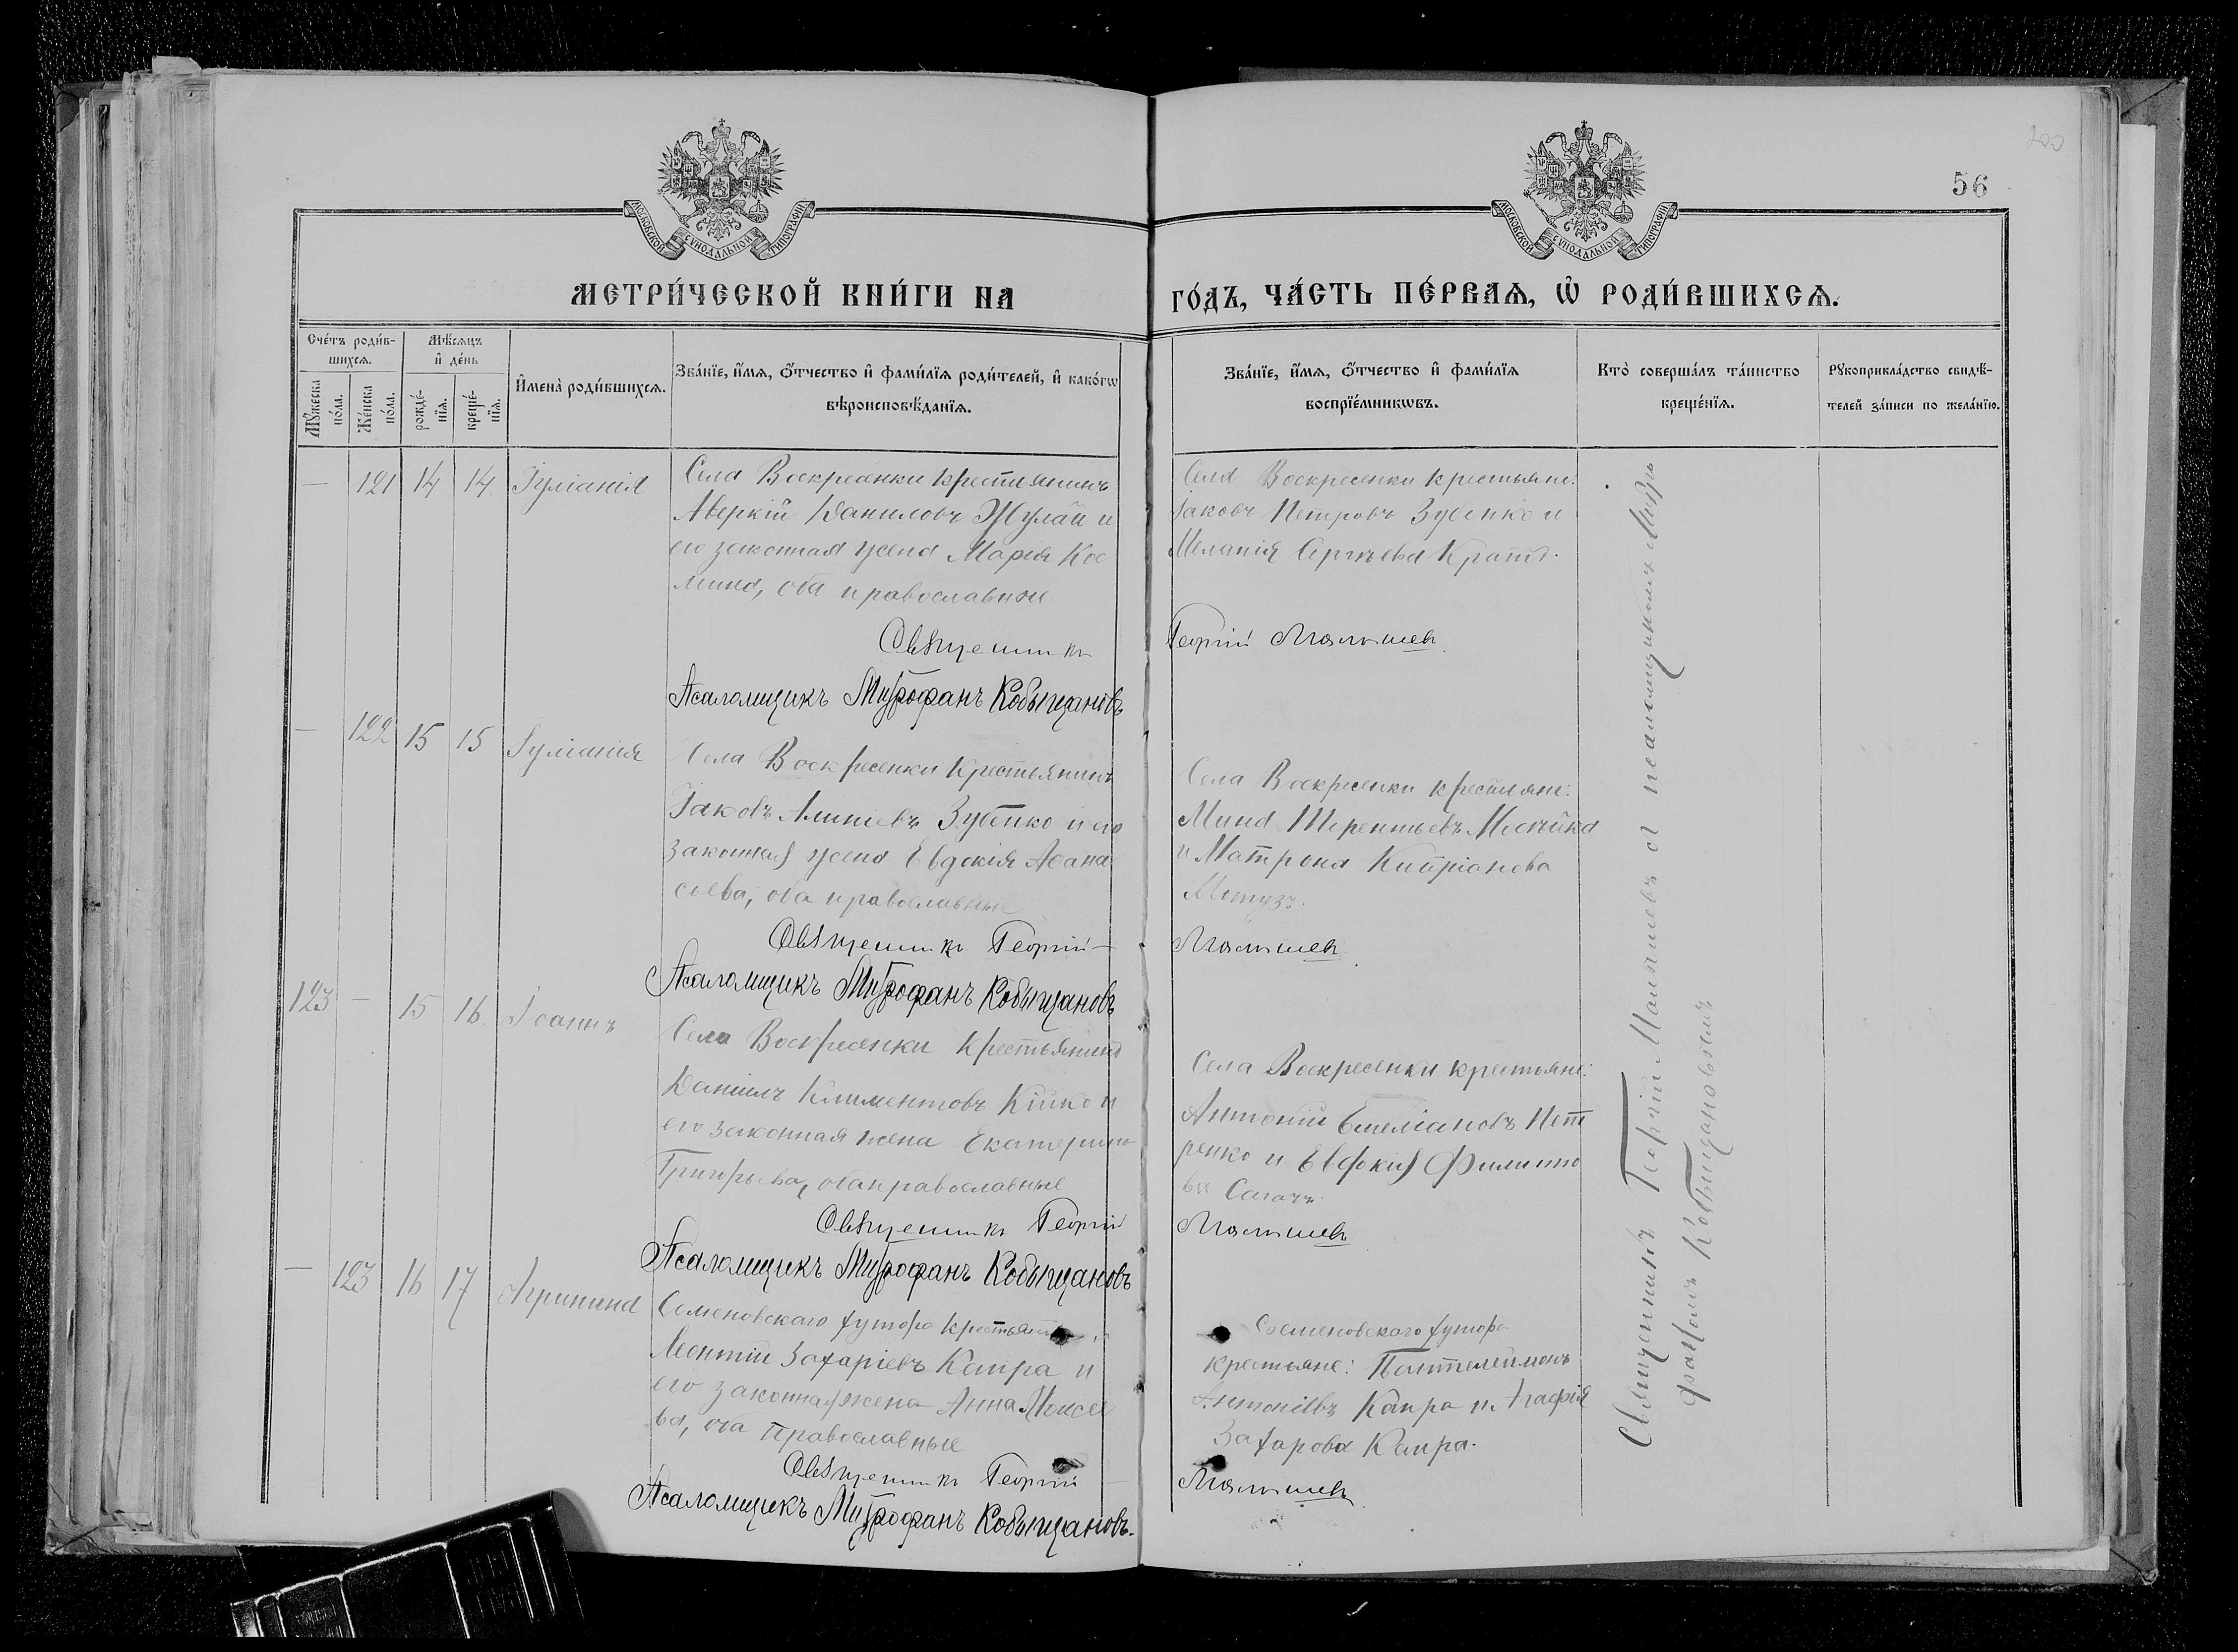 200
56
МОСКОВСКОЙ СѴНОДАЛЬНОЙ ТИПОГРАФІИ
МОСКОВСКОЙ СѴНОДАЛЬНОЙ ТИПОГРАФІИ
МЕТРИ́ЧЕСКОЙ КНИ́ГИ НА
ГО́ДЪ, ЧА́СТЬ ПЕ́РВАѦ, Ѡ РОДИ́ВШИХСѦ.
Сче́тъ роди́в-
шихсѧ.
Мꙋжеска по́ла.
Же́нска по́ла.
Мѣ́сѧцъ
и҆ де́нь
рожде́-
нїѧ.
креще́-
нїѧ.
И҆мена̀ роди́вшихсѧ.
Зва́нїе, и҆́мѧ, ѻ҆́тчество и҆ фамилїѧ роди́телей, и҆ како́гѡ
вѣроисповѣ́данїѧ.
Зва́нїе, и҆́мѧ, ѻ҆́тчество и҆ фамилїѧ
воспрїе́мникѡвъ.
Кто̀ соверша́лъ та́инство
креще́нїѧ.
Рꙋкоприкла́дство свидѣ́-
телей за́писи по жела́нїю.
— 121 14 14. Іуліанія
Села Воскресенки крестьянинъ
Аверкій Даниловъ Жулай и
его законная жена Марія Кос
мина, оба православные
Священникъ
Псаломщикъ Митрофанъ Кобыщановъ
Села Воскресенки крестьяне:
Іаковъ Петровъ Зубенко и
Меланія Сергѣева
Георгій Малышевъ
— 122 15 15 Іуліанія
Села Воскресенки Крестьянинъ
Іаковъ Зубенко и его
законная жена Евдокія Аѳана
сіева, оба православные
Священникъ Георгій
Псаломщикъ Митрофанъ Кобыщановъ
Села Воскресенки крестьяне:
Мина Терентьевъ
и Матрона Кипріанова
Мотузъ.
Малышевъ
123 — 15 16. Іоаннъ
Села Воскресенки Крестьянинъ
Даніилъ Климентовъ Кійко и
его законная жена Екатерина
Григорьева, оба православные
Священникъ Георгій
Псаломщикъ Митрофанъ Кобыщановъ
Села Воскресенки крестьяне:
Антоній Емеліановъ Пет
ренко и Евдокія Филиппо
ва Сагачъ.
Малышевъ
— 123 16 17 Агрипина
Семеновскаго хутора
Леонтій Захаріевъ Капра и
его законная жена Анна Моисее
ва, оба православные
Священникъ Георгій
Псаломщикъ Митрофанъ Кобыщановъ.
Семеновскаго хутора
крестьяне: Пантелеймонъ
Антоніевъ Капра и Агафія
Захарова Капра.
Малышевъ
Священникъ Георгій Малышевъ съ псаломщикомъ
Кобыщановымъ